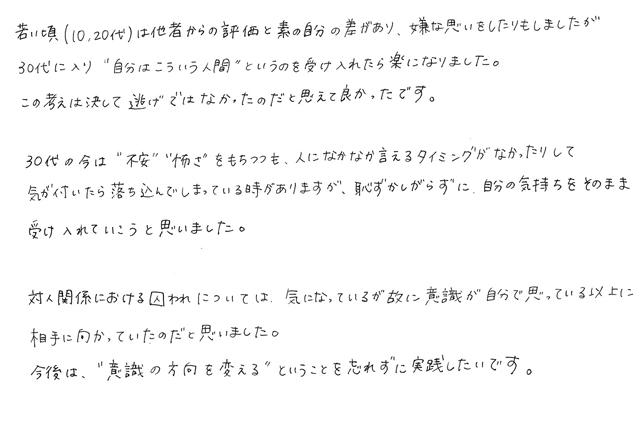 若い頃(10,20代)は他者からの評価と素の自分の差があり、嫌な思いをしたりもしましたが
30代に入り"自分はこういう人間"というのを受け入れたら楽になりました。
この考えは決して逃げではなかったのだと思えて良かったです。
30代の今は"不安""怖さ"をもちつつも、人になかなか言えるタイミングがなかったりして
気が付いたら落ち込んでしまっている時がありますが、恥ずかしがらずに、自分の気持ちをそのまま
受け入れていこうと思いました。
対人関係における囚われについては、気になっているが故に意識が自分で思っている以上に
相手に向かっていたのだと思いました。
今後は、"意識の方向を変える"ということを忘れずに実践したいです。